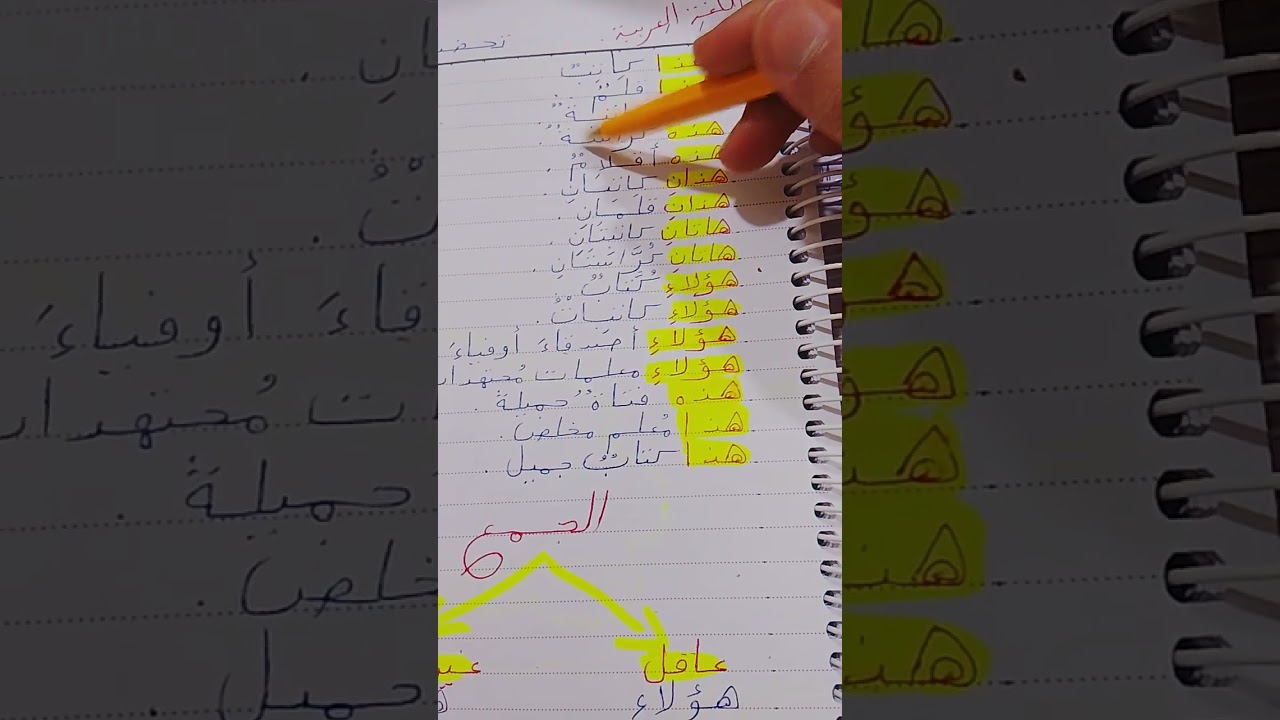 اللغة العربية
هذا كاتبٌ
هذا قلمٌ .
هذه كرّاسةٌ .
هذه أقلامٌ .
هذانِ كاتبانِ .
هذانِ قلمانِ .
هاتانِ كاتبتانِ .
هاتانِ كُرَّاستَانِ .
هؤلاءِ كُتَّابٌ .
هؤلاءِ كاتباتٌ .
هؤلاءِ أصدقاءَ أوفياءَ
هؤلاءِ معلمات مُجتهدات
هذه فتاةٌ جميلة .
هذا مُعلم مخلص .
هذا كتابٌ جميل .
الجمع
عاقل
هؤلاء